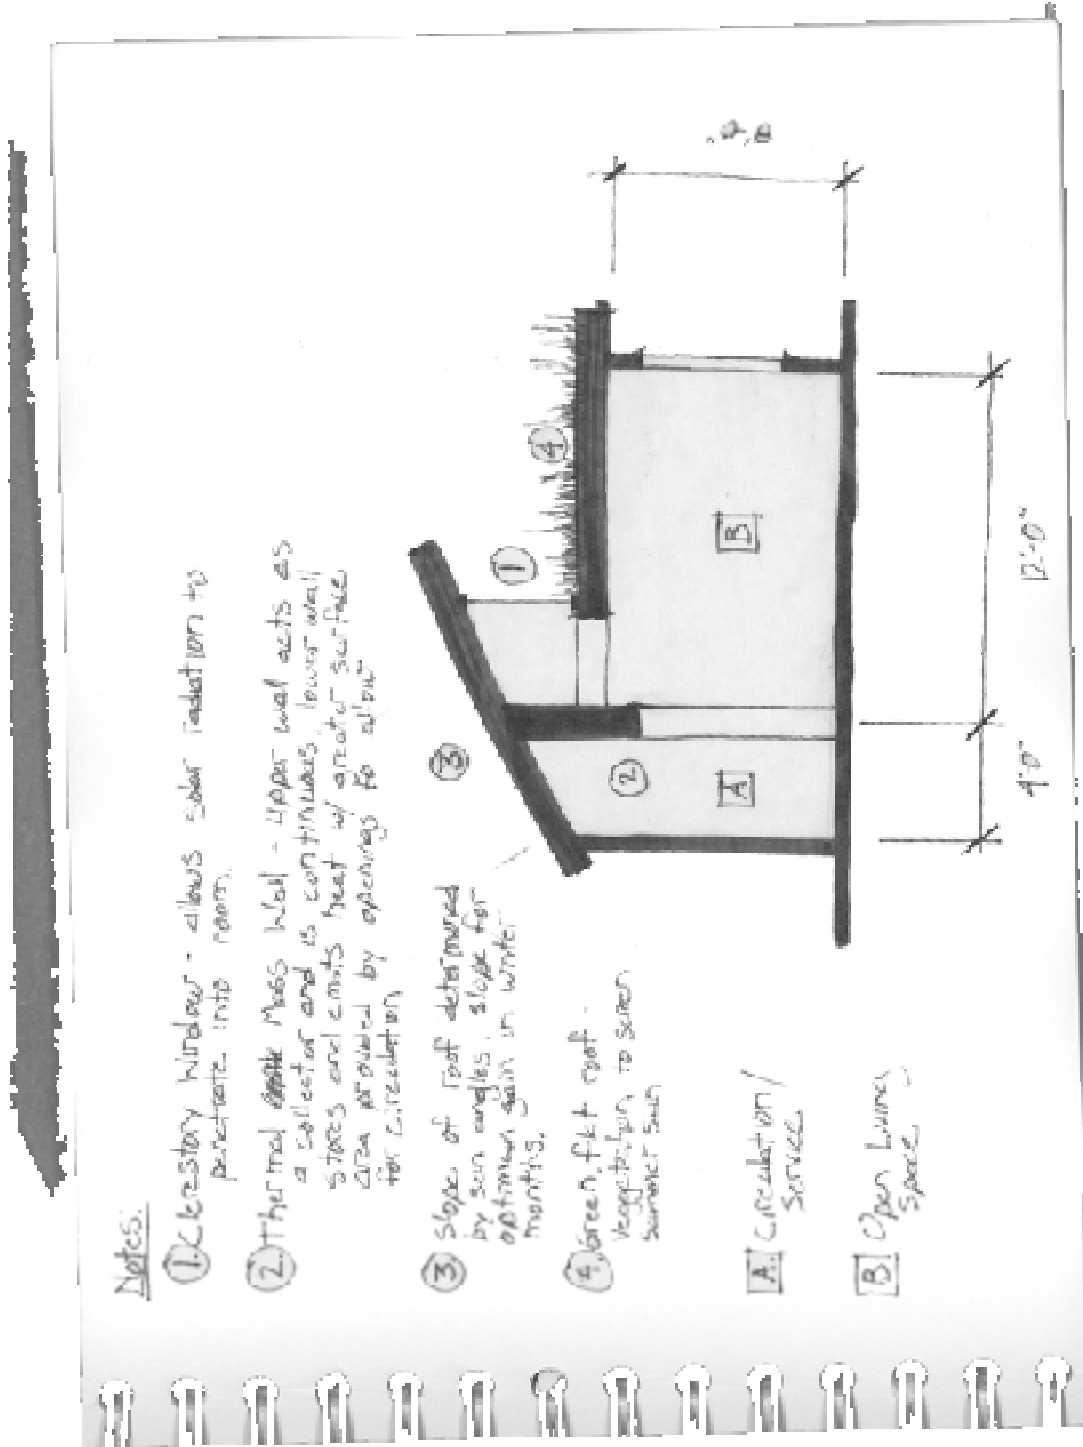 Notes:
1. Clerestory Window - allows solar radiation to
penetrate into room.
2. Thermal Mass Wall - upper wall acts as
a collector and is continuous, lower wall
stores and emits heat w/ greater surface
area provided by openings to allow
for circulation
3 Slope of roof determined
by sun angles. slope for
optimum gain in winter
months.
4. Green, flat roof -
vegetation to screen
summer sun
A. Circulation /
Service
B Open Living
Space
3
1
4
2
A
B
4'-0"
12'-0"